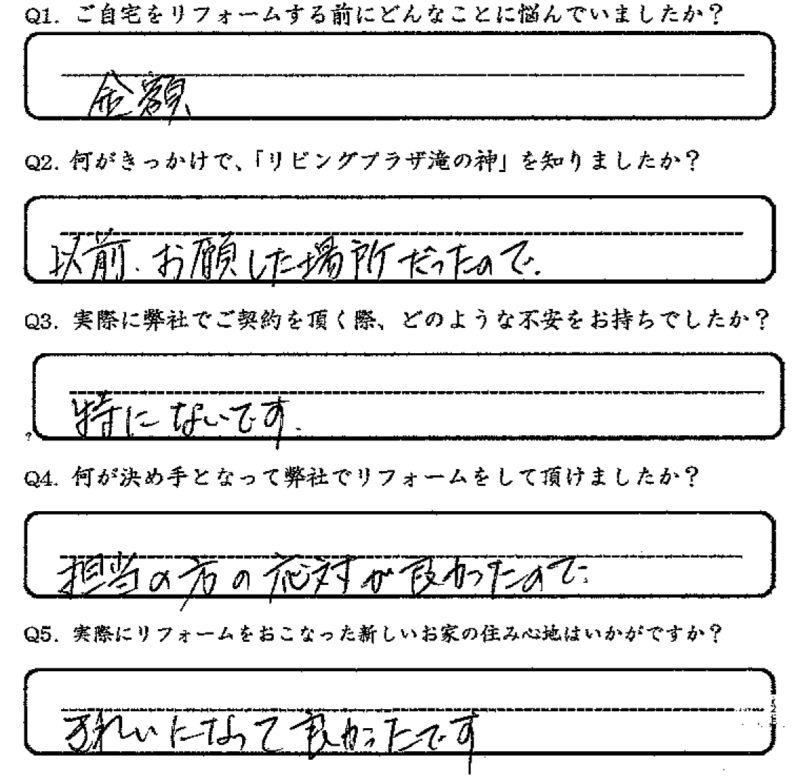 Q1. ご自宅をリフォームする前にどんなことに悩んでいましたか？
金額
Q2. 何がきっかけで、「リビングプラザ滝の神」を知りましたか？
以前、お願した場所だったので.
Q3. 実際に弊社でご契約を頂く際、どのような不安をお持ちでしたか？
特にないです.
Q4. 何が決め手となって弊社でリフォームをして頂けましたか？
担当の方の応対が良かったので.
Q5. 実際にリフォームをおこなった新しいお家の住み心地はいかがですか？
きれいになって良かったです